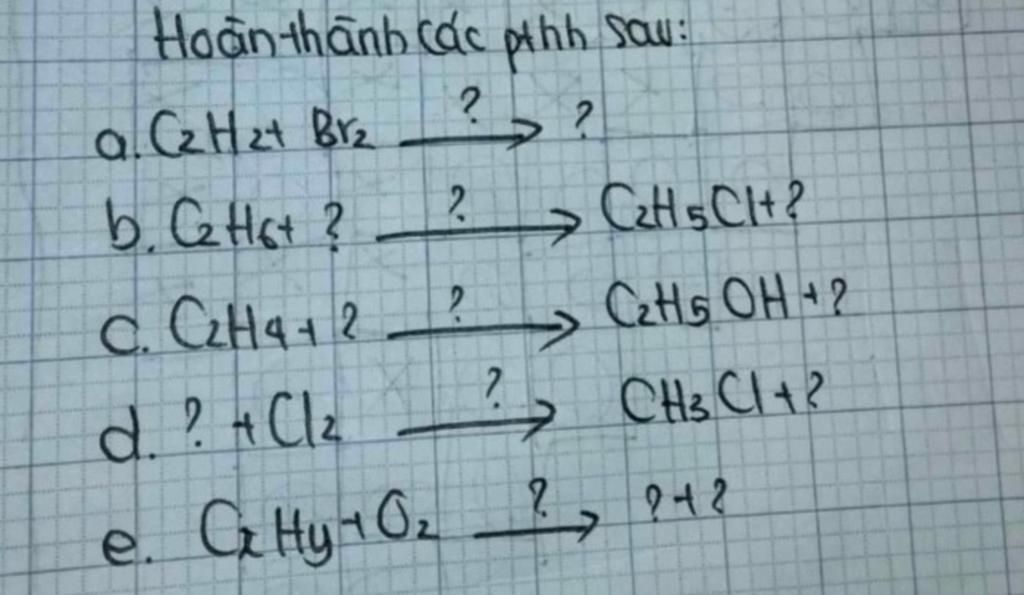 Hoàn thành các pthh sau:
a. C2H2 + Br2 —?→ ?
b. C2H6 + ? —?→ C2H5Cl + ?
c. C2H4 + ? —?→ C2H5OH + ?
d. ? + Cl2 —?→ CH3Cl + ?
e. CxHy + O2 —?→ ? + ?